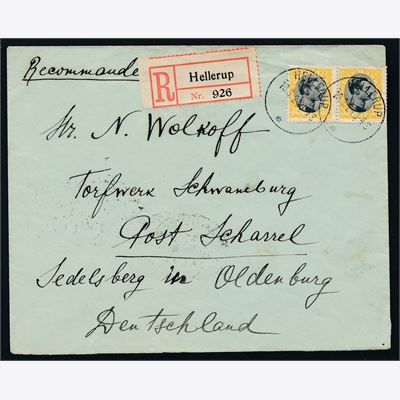 Recommandé
R
Hellerup
Nr. 926
HELLERUP
HELLERUP
Hr. N. Wolkoff
Torfwerk Schwaneburg
Post Scharrel
Sedelsberg in Oldenburg
Deutschland